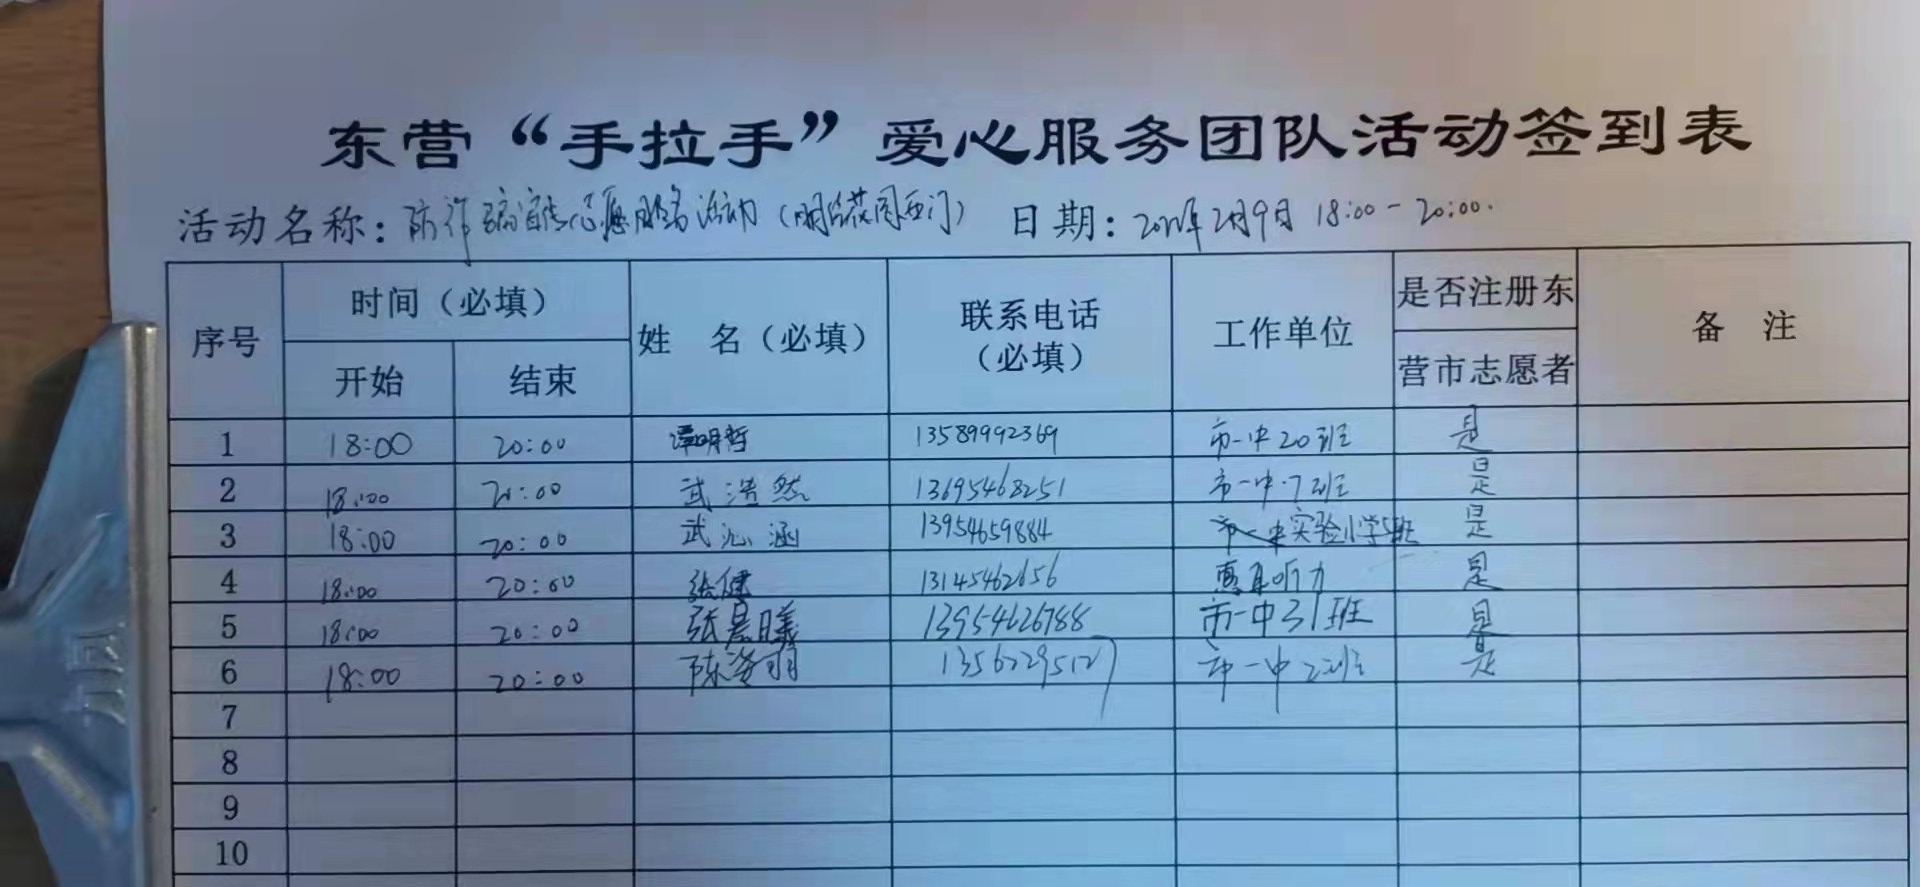 东营“手拉手”爱心服务团队活动签到表
活动名称：防诈骗宣传志愿服务活动（明活花园西门） 日期：2022年2月9日 18:00-20:00.
序号 时间（必填） 姓 名（必填） 联系电话（必填） 工作单位 是否注册东营市志愿者 备 注
开始 结束
1 18:00 20:00 谭明哲 13589992369 市一中20班 是
2 18:00 20:00 武浩然 13695468251 市一中7班 是
3 18:00 20:00 武沁涵 13954659884 实验小学5班 是
4 18:00 20:00 张健 13145462656 惠耳听力 是
5 18:00 20:00 张晨曦 13954626788 市一中31班 是
6 18:00 20:00 陈姿羽 13562295127 市一中22班 是
7
8
9
10